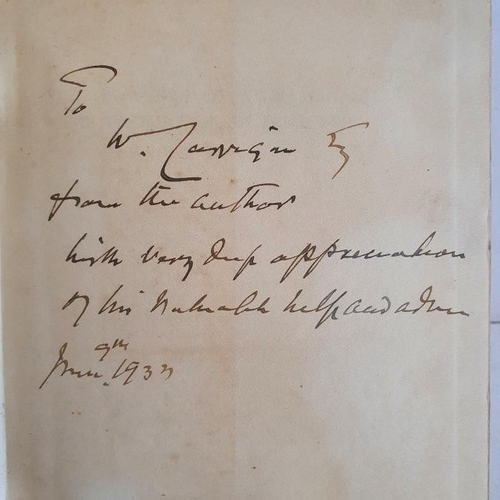 To
W. Carrigan Esq
from the author
with very deep appreciation
of his valuable help and advice
June 9th 1933